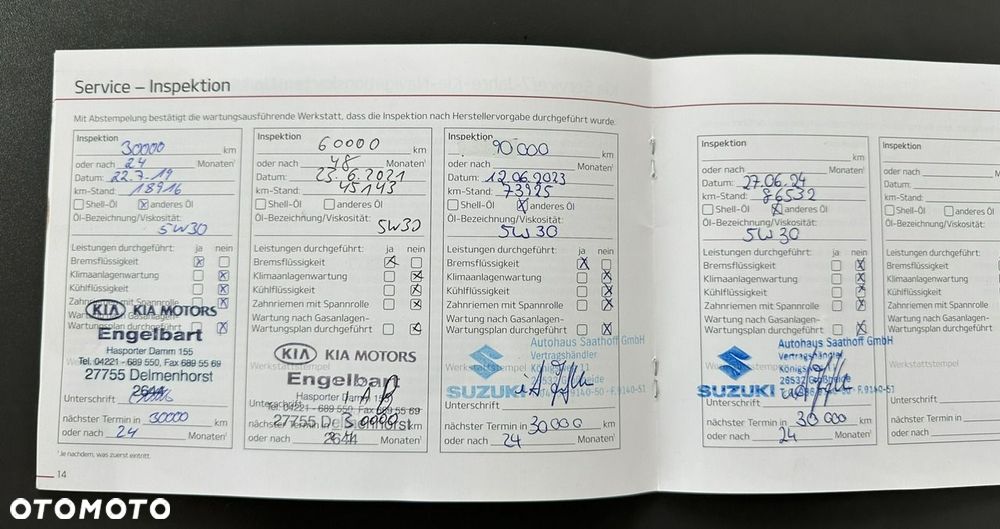 Service – Inspektion
Mit Abstempelung bestätigt die wartungsausführende Werkstatt, dass die Inspektion nach Herstellervorgabe durchgeführt wurde.
Inspektion
30000 km
oder nach 24 Monaten¹
Datum: 22.7.19
km-Stand: 18916
Shell-Öl anderes Öl
Öl-Bezeichnung/Viskosität:
5W30
Leistungen durchgeführt: ja nein
Bremsflüssigkeit
Klimaanlagenwartung
Kühlflüssigkeit
Zahnriemen mit Spannrolle
Wartung nach Gasanlagen-
Wartungsplan durchgeführt
KIA KIA MOTORS
Engelbart
Hasporter Damm 155
Tel. 04221 - 689 550, Fax 689 55 69
27755 Delmenhorst
2644
Unterschrift
nächster Termin in 30000 km
oder nach 24 Monaten¹
Inspektion
60000 km
oder nach 48 Monaten¹
Datum: 23.6.2021
km-Stand: 45143
Shell-Öl anderes Öl
Öl-Bezeichnung/Viskosität:
5W30
Leistungen durchgeführt: ja nein
Bremsflüssigkeit
Klimaanlagenwartung
Kühlflüssigkeit
Zahnriemen mit Spannrolle
Wartung nach Gasanlagen-
Wartungsplan durchgeführt
Werkstattstempel
KIA KIA MOTORS
Engelbart
Hasporter Damm 155
Unterschrift
Tel. 04221 - 689 550, Fax 689 55 69
27755 Delmenhorst
nächster Termin in 30000 km
2644
oder nach Monaten¹
Inspektion
90 000 km
oder nach Monaten¹
Datum: 12.06.2023
km-Stand: 73925
Shell-Öl anderes Öl
Öl-Bezeichnung/Viskosität:
5W30
Leistungen durchgeführt: ja nein
Bremsflüssigkeit
Klimaanlagenwartung
Kühlflüssigkeit
Zahnriemen mit Spannrolle
Wartung nach Gasanlagen-
Wartungsplan durchgeführt
Autohaus Saathoff GmbH
Vertragshändler
Werkstattstempel
SUZUKI
Unterschrift
nächster Termin in 30000 km
oder nach 24 Monaten¹
¹Je nachdem, was zuerst eintritt.
14
Inspektion
km
oder nach Monaten¹
Datum: 27.06.24
km-Stand: 86532
Shell-Öl anderes Öl
Öl-Bezeichnung/Viskosität:
5W30
Leistungen durchgeführt: ja nein
Bremsflüssigkeit
Klimaanlagenwartung
Kühlflüssigkeit
Zahnriemen mit Spannrolle
Wartung nach Gasanlagen-
Wartungsplan durchgeführt
Autohaus Saathoff GmbH
Vertragshändler
Werkstattstempel
SUZUKI
Unterschrift
nächster Termin in 30 000 km
oder nach 24 Monaten¹
Inspektion
oder nach
Datum:
km-Stand:
Shell-Öl anderes
Öl-Bezeichnung/Visko
Leistungen durchgeführt
Bremsflüssigkeit
Klimaanlagenwartung
Kühlflüssigkeit
Zahnriemen mit Spann
Wartung nach Gasanla
Wartungsplan durchge
Werkstatt
Unterschrift
nächster Termin in
oder nach
OTOMOTO